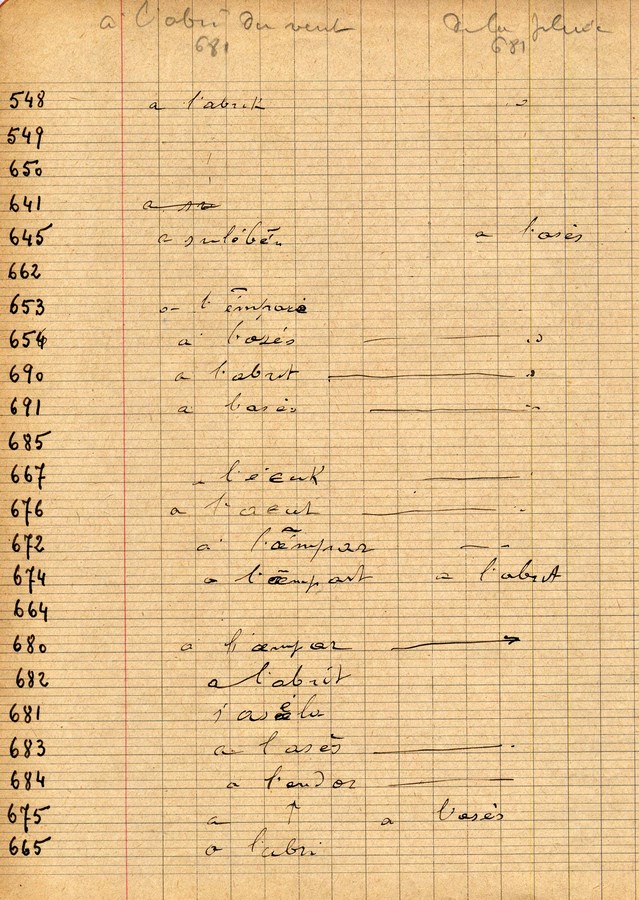 a l'abri du vent de la pluie
681 681
548 a l'abrik
549
650
641 a
645 a sulébén a l'asès
662
653 l'émpare
654 a l'osés
690 a l'abrit
691 a l'asès
685
667 l'
676 a l'
672 a l'émpar
674 a l'émpart a l'abrit
664
680 a l'ampar
682 a l'abrit
681
683 a l'asès
684 a l'endor
675 a a l'asès
665 a l'abri